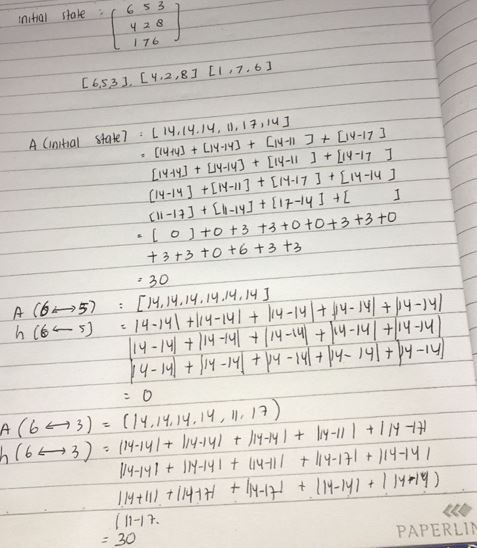 initial state : [ 6 5 3
4 2 8
1 7 6 ]
[6,5 3], [4,2,8] [1,7,6]
A (initial state) : [14,14,14, 11,17,14]
= [14+4] + [14-14] + [14-11] + [14-17]
[14+4] + [14-14] + [14-11] + [14-17]
[14-14] + [14-11] + [14-17] + [14-14]
[11-17] + [11-14] + [17-14] + [ ]
= [ 0 ] +0 + 3 +3 +0 +0 +3 +3 +0
+3 +3 +0 +6 +3 +3
= 30
A (6 ↔ 5) : [14,14,14,14,14,14]
h (6 ← 5] = |4-14| + |14-14| + |14-14| + |14-14| + |14-14|
|14-14| + |14-14| + |14-14| + |14-14| + |14-14|
|14-14| + |14-14| + |14-14| + |14-14| + |14-14|
= 0
A (6 ↔ 3) = (14,14,14,14,11,17)
h (6 ↔ 3) = |14-14| + |14-14| + |14-14| + |14-11| + |14-17|
|14-14| + |14-14| + |14-11| + |14-17| + |14-14|
|14+11| + |14+17| + |14-17| + |14-14| + |14-14)
|11-17.
= 30
PAPERLIN